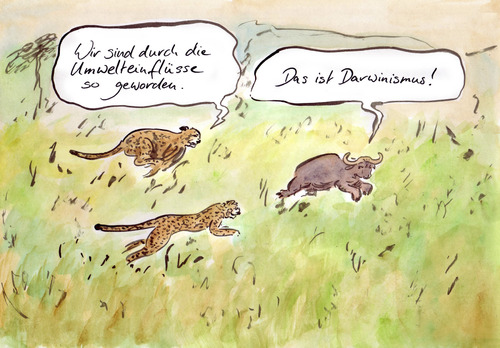 Wir sind durch die
Umwelteinflüsse
so geworden.
Das ist Darwinismus!